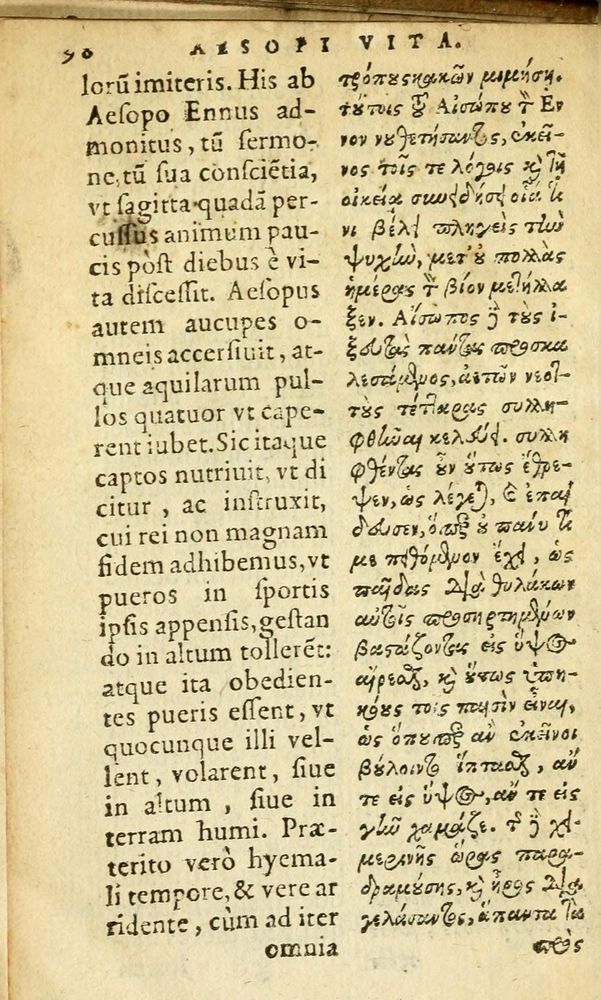 90
AESOPI VITA.
lorũ imiteris. His ab
Aeſopo Ennus ad-
monitus, tũ ſermo-
ne, tũ ſua conſciẽtia,
vt ſagitta quadã per-
cuſſus animum pau-
cis pòſt diebus è vi-
ta diſceſſit. Aeſopus
autem aucupes o-
mneis accerſiuit, at-
que aquilarum pul-
los quatuor vt cape-
rent iubet. Sic itaque
captos nutriuit, vt di
citur, ac inſtruxit,
cui rei non magnam
fidem adhibemus, vt
pueros in ſportis
ipſis appenſis, geſtan
do in altum tollerẽt:
atque ita obedien-
tes pueris eſſent, vt
quocunque illi vel-
lent, volarent, ſiue
in altum, ſiue in
terram humi. Præ-
terito verò hyema-
li tempore, & vere ar
ridente, cùm ad iter
omnia
τρόπους κακῶν μιμήσῃ.
τούτοις τοῦ Αἰσώπου τὸν Ἔν
νον νουθετήσαντος, ἐκεῖ-
νος τοῖς τε λόγοις καὶ τῇ
οἰκείᾳ συνειδήσει οἷά τι
νι βέλει πληγεὶς τὴν
ψυχὴν, μετ' οὐ πολλὰς
ἡμέρας τὸν βίον μετήλλα
ξεν. Αἴσωπος δὲ τοὺς ἰ-
ξευτὰς πάντας προσκα
λεσάμενος, ἀετῶν νεοτ-
τοὺς τέτταρας συλλη-
φθῆναι κελεύει. συλλη
φθέντας οὖν οὕτως ἔθρε-
ψεν, ὡς λέγεται, καὶ ἐπαί
δευσεν, ὅπερ οὐ πάνυ τι
με πειθόμενον ἔχει, ὡς
παῖδας διὰ θυλάκων
αὐτοῖς προσηρτημένων
βαστάζοντας εἰς ὕψος
αἴρεσθαι, καὶ οὕτως ὑπη-
κόους τοῖς παισὶν εἶναι,
ὡς ὅπουπερ ἂν ἐκεῖνοι
βούλοιντο ἵπτασθαι, ἄν
τε εἰς ὕψος, ἄν τε εἰς
γῆν χαμάζε. τῆς δὲ χει
μερινῆς ὥρας παρα-
δραμούσης, καὶ ἦρος δια
γελάσαντος, ἅπαντα τὰ
πρὸς